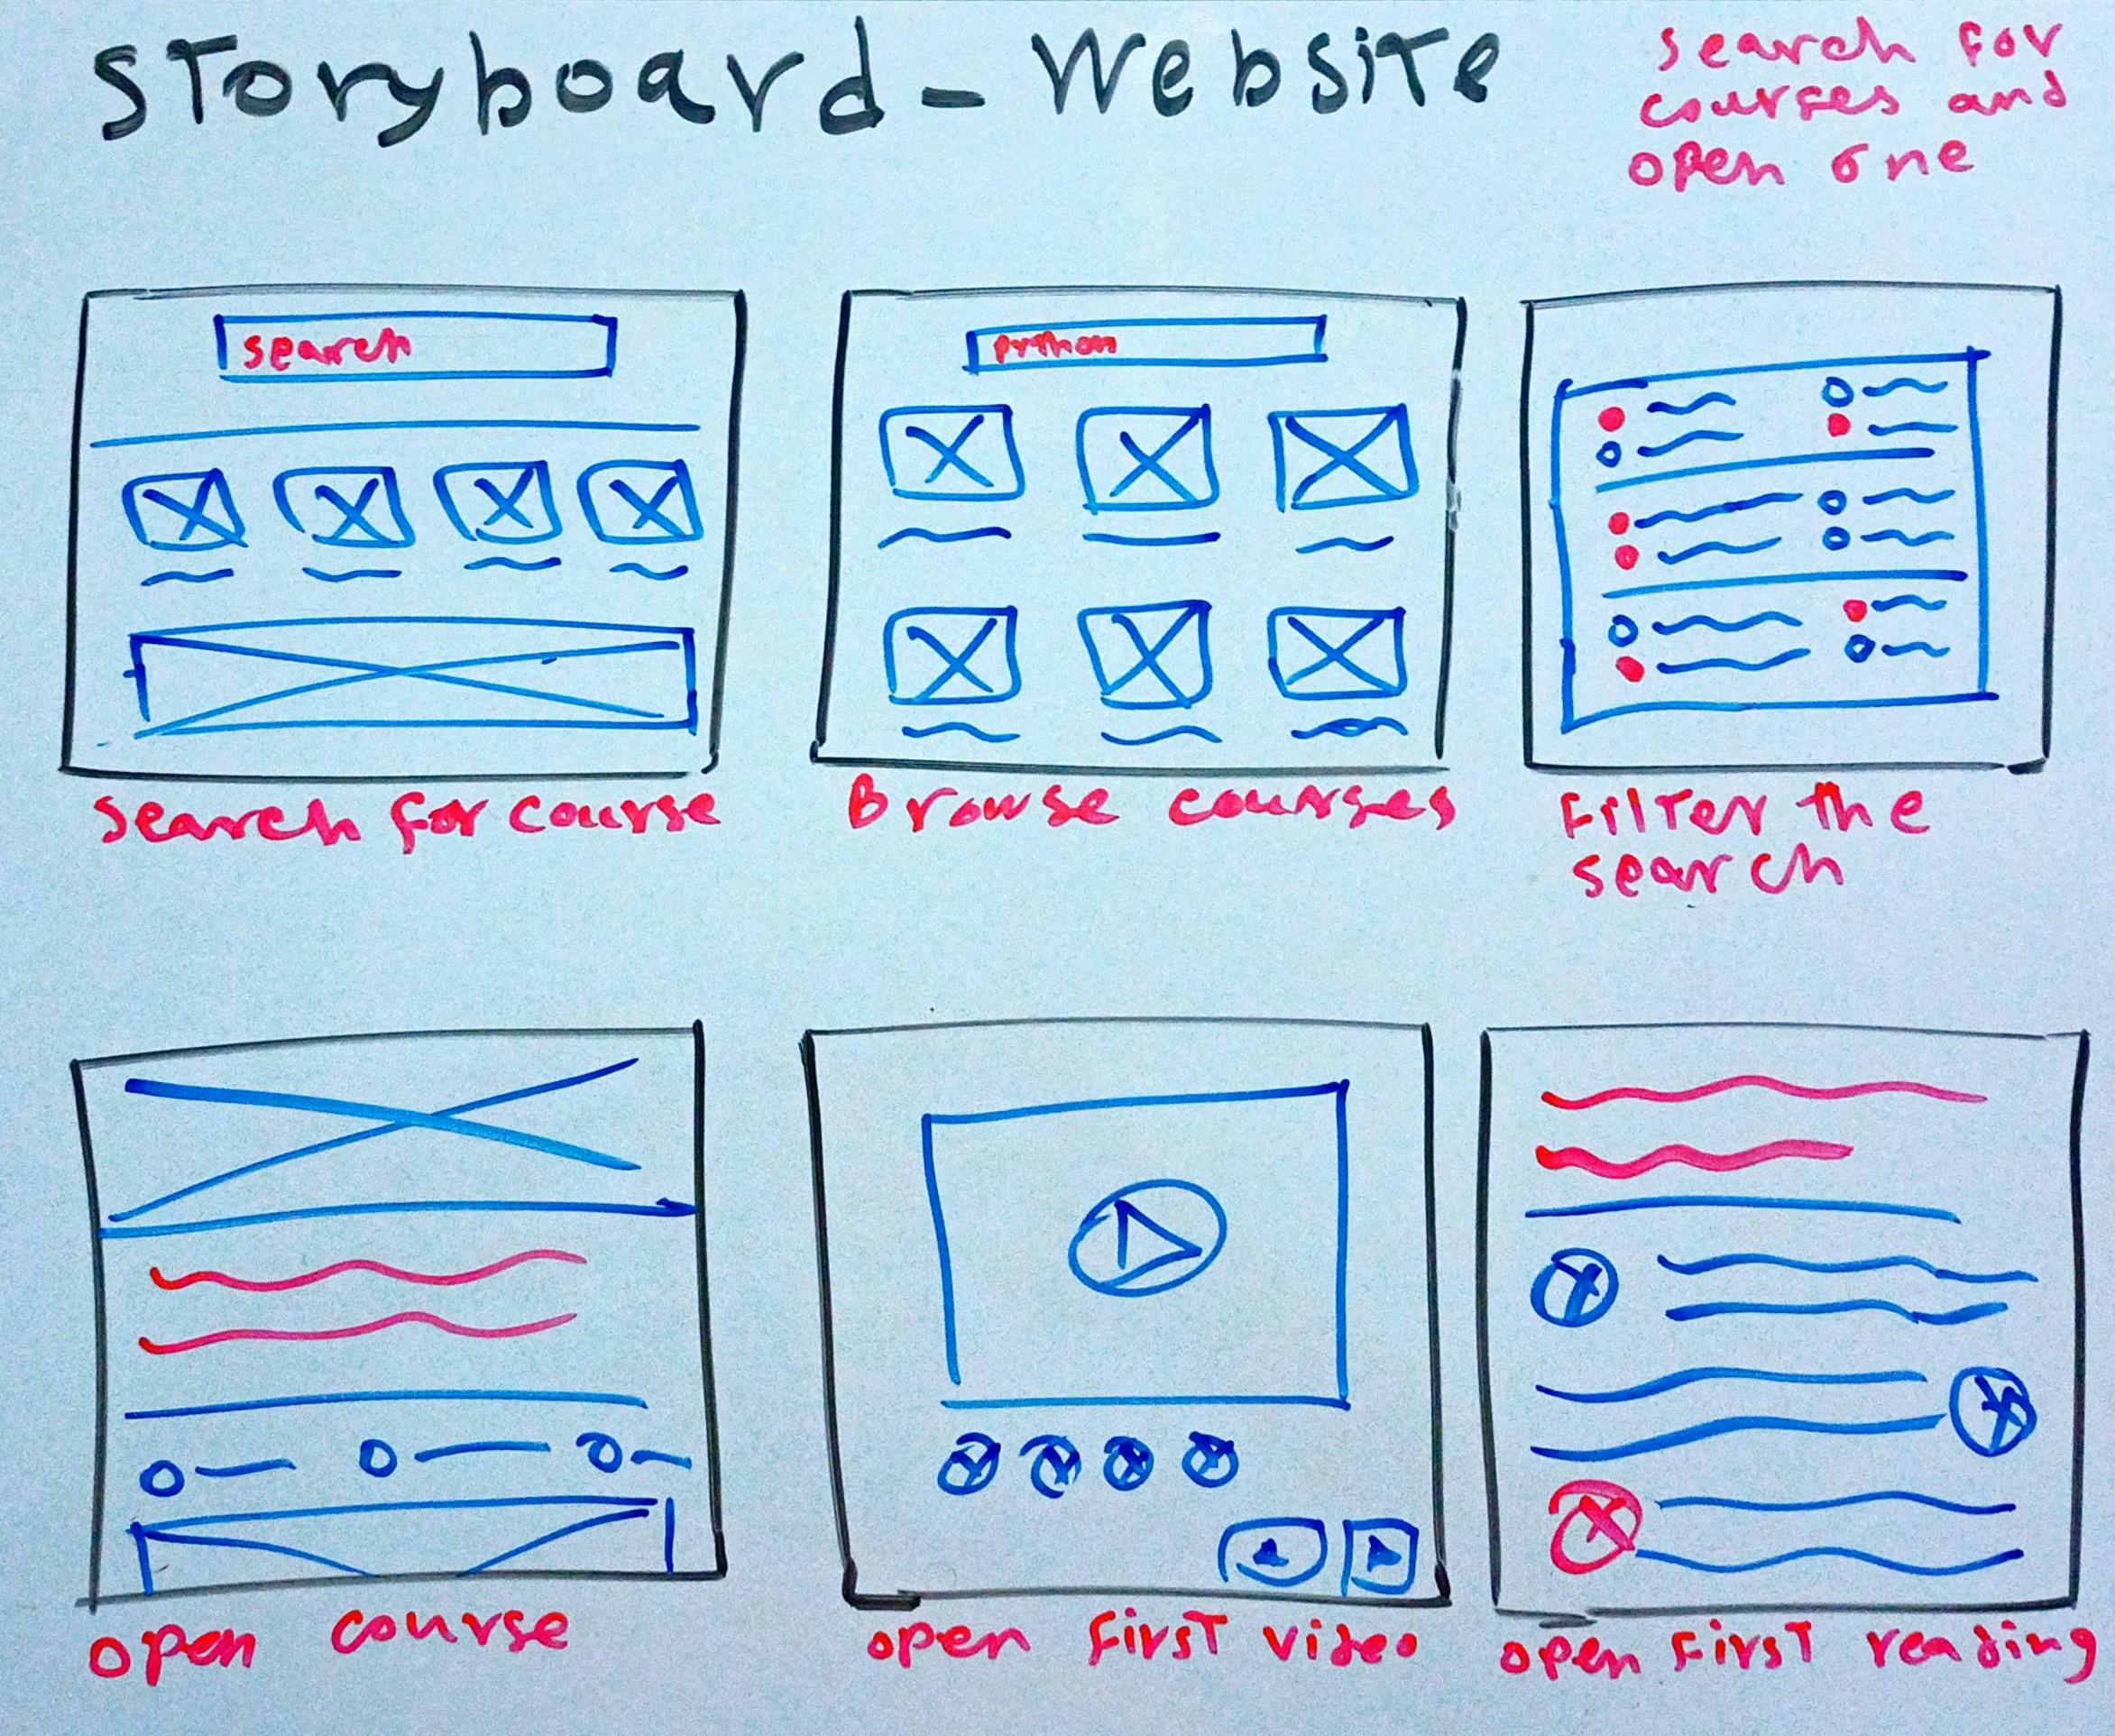 Storyboard - Website
search for
courses and
open one
search
python
search for course
Browse courses
Filter the
search
open course
open first video
open first reading